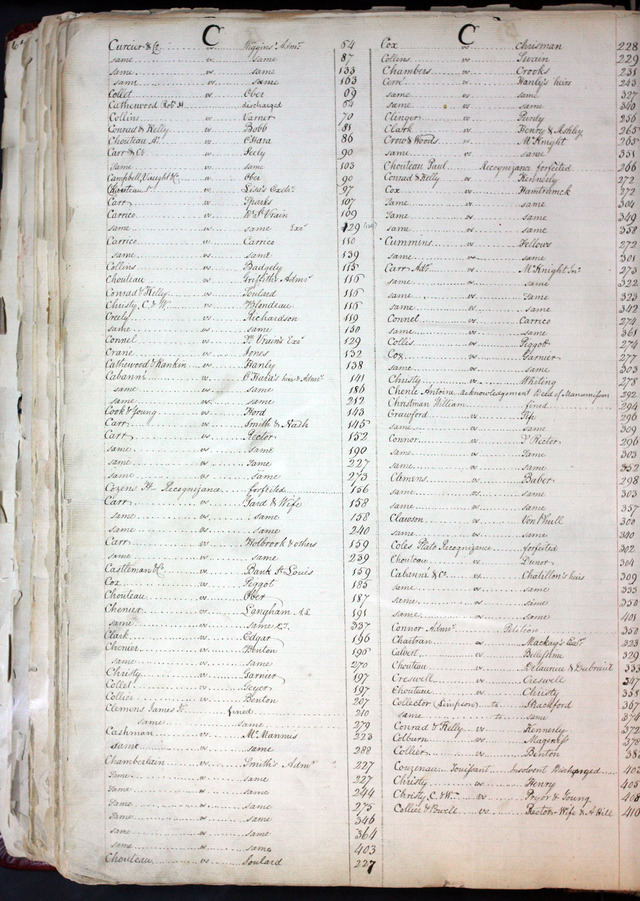 C
Curcier & Co vs Higgins' Admr 54
same vs same 87
same vs same 133
same vs same 163
Collet vs Ober 09
Cathewood Robt H discharged 64
Collins vs Varner 70
Conrad & Kelly vs Bobb 81
Chouteau vs OHara 86
Carr & Co vs Seely 90
same vs same 103
Campbell, Vaught & Co vs Ober 90
Chouteau vs Lisa's Exetr 97
Carr vs Sparks 107
Carrico vs St Vrain 109
same vs same Exr 129
Carrico vs Carrico 110
same vs same 139
Collins vs Badgely 115
Chouteau vs Griffith's Admr 116
Conrad & Kelly vs Soulard 116
Christy, C. & W. vs Blondeau 116
Creely vs Richardson 119
same vs same 130
Connel vs St Vrain's Exr 129
Crane vs Jones 132
Cathewood & Rankin vs Hanly 138
Cabanni vs O'Hara's heirs & Admr 141
same vs same 186
same vs same 212
Cook & Young vs Ford 143
Carr vs Smith & Nash 145
Carr vs Rector 152
same vs same 190
same vs same 227
same vs same 273
Cozens W. Recognizance forfeited 156
Carr vs Yard & Wife 158
same vs same 158
same vs same 240
Carr vs Holbrook & others 159
same vs same 239
Castleman & Co vs Bank St Louis 159
Cox vs Piggot 185
Chouteau vs Ober 187
Chenier vs Langham A.L. 191
same vs same 337
Clark vs Edgar 196
Chenier vs Benton 196
same vs same 270
Christy vs Garnier 197
Collet vs Geyer 197
Collier vs Benton 207
Clemens James Jr. fined 210
same same 279
Cashman vs McMannus 223
same vs same 288
Chamberlain vs Smith's Admr 227
same vs same 227
same vs same 244
same vs same 275
same vs same 346
same vs same 364
same vs same 403
Chouteau vs Soulard 227
C
Cox vs Chrisman 228
Collins vs Swain 229
Chambers vs Crooks 231
Cerre vs Hanly's heirs 243
same vs same 327
same vs same 340
Clinger vs Purdy 256
Clark vs Henry & Ashley 265
Crow & Woods vs McKnight 265
same vs same 351
Chouteau Paul Recognizance forfeited 266
Conrad & Kelly vs Kennerly 272
Cox vs Hamtramck 272
same vs same 304
same vs same 349
same vs same 358
Cummins vs Fellows 272
same vs same 301
Carr Adr. vs McKnight Jno 273
same vs same 322
same vs same 325
same vs same 342
Connel vs Carrico 272
same vs same 361
Collis vs Piggott 274
Cox vs Garnier 277
same vs same 303
Christy vs Whiting 275
Chenie Antoine acknowledgement Deed of Manumission 292
Christman William fined 294
Crawford vs Fife 295
same vs same 309
Connor vs T Rector 296
same vs same 303
same vs same 352
Clemens vs Baber 298
same vs same 303
same vs same 357
Clawson vs Von Phull 300
same vs same 340
Coles Plato Recognizance forfeited 302
Chouteau vs Dunot 304
Cabanni & Co. vs Chatillon's heirs 309
same vs same 335
same vs same 352
same vs same 401
Connor Admr Petition 331
Chaitran vs Mackay's Exr. 223
Calvert vs Bellissime 129
Chouteau vs Delaurier & Dubreuil 333
Creswell vs Creswell 347
Chouteau vs Christy 351
Collector (Simpson) to Shackford 367
same to same 374
Conrad & Kelly vs Kennerly 372
Colburn vs Magenis 378
Collier vs Benton 382
Couzenau Touissant Insolvent Discharged 402
Christy vs Henry 405
Christy, C. & W. vs Pryor & Young 408
Collier & Powell vs Rector Wife & A Hill 410